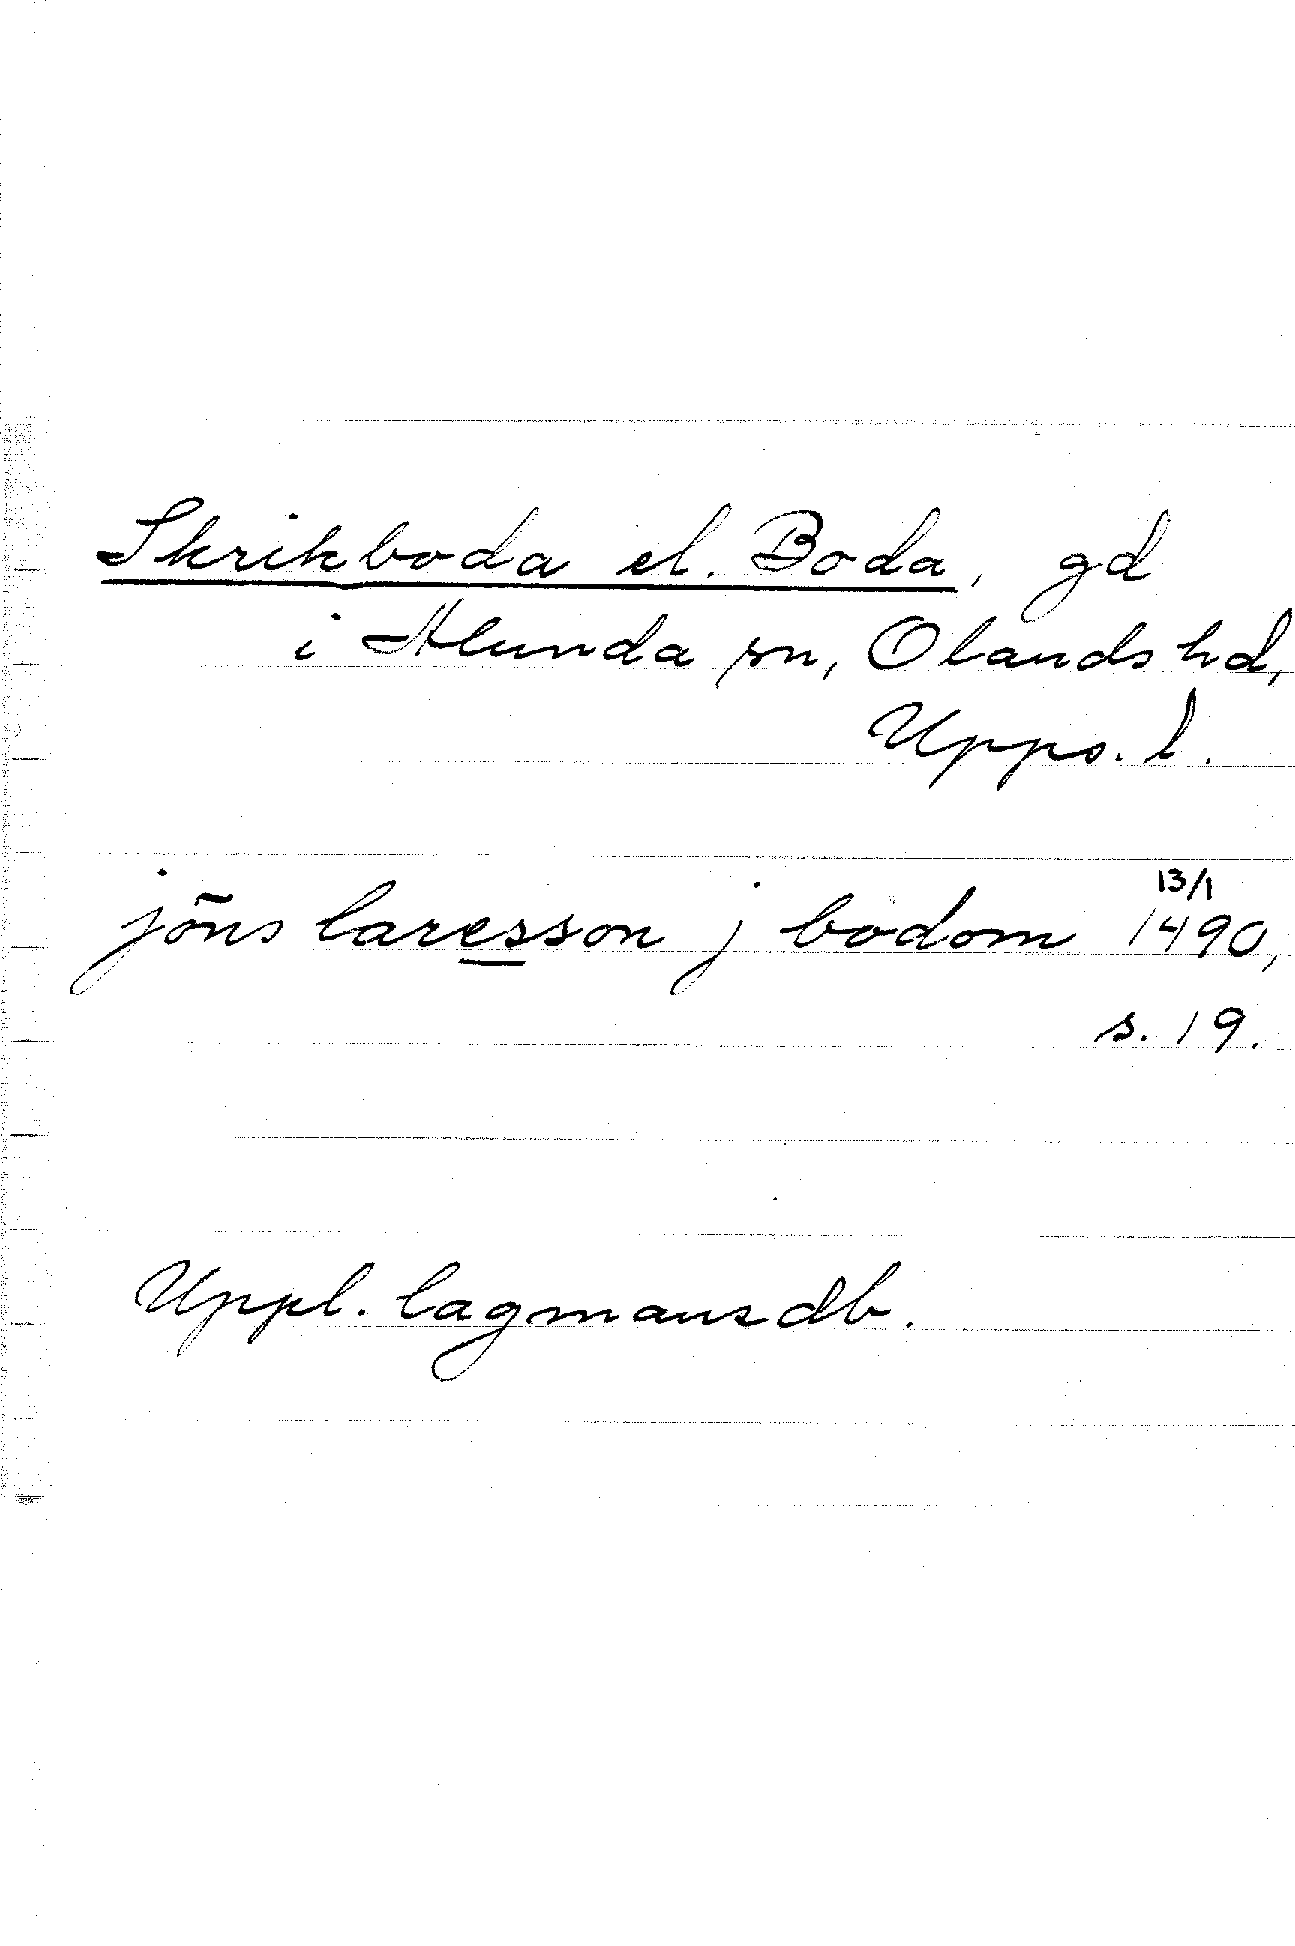 Skrikboda el. Boda, gd
i Alunda sn, Olands hd,
Upps. l.
jöns laresson j bodom 13/1 1490,
s. 19.
Uppl. lagmansdb.